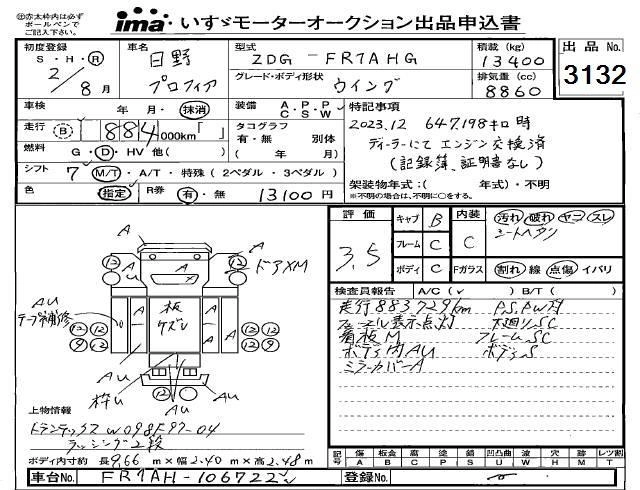 ◎赤太枠内は必ず
ボールペンで
ご記入下さい。
ima いすゞモーターオークション出品申込書
初度登録 S・H・Ⓡ 2/8月
車名 日野 プロフィア
型式 ZDG - FR1AHG
グレード・ボディ形状 ウイング
積載 (kg) 13400
排気量 (cc) 8860
出品 No. 3132
車検 年 月・抹消
装備 A・P・P C・S・W
特記事項
走行 B 884,000km「 」
タコグラフ 有・無 別体 ( 年 月)
2023.12 647,198キロ時
ディーラーにてエンジン交換済
(記録簿、証明書なし)
燃料 G・D・HV 他( )
シフト 7 M/T・A/T・特殊 (2ペダル・3ペダル)
架装物年式:( 年式)・不明
※不明の場合は、不明に○をする。
色 指定 R券 有・無 13100円
評価 3.5
キャブ B
フレーム C
ボディ C
内装 C
Fガラス
汚れ 破れ ヤニ スレ
シートヘタリ
割れ 線 点傷 イバリ
検査員報告 A/C(✓ ) B/T( )
走行883729km P.S.PW付
フューエル表示点灯 下廻りSC
看板M フレームSC
ボディ内AU ボディS
ミラーカバーA
A
A
A
A
Au
A
12
12
ドアXM
AU
テープ補修
板
ケズレ
A
A
A
A
12 12
9 12
12 12
9 12
Au
枠u
Au
Au
上物情報
トランテックス W098F97-04
ラッシング2段
ボディ内寸約 長9.66m×幅2.40m×高2.48m
記号 傷 A 板金 B 腐 C 塗 P 錆 S 凹凸曲 U 波 W 穴 H 跡 M レツ割 T
車台No. FR1AH-106722
登録No.